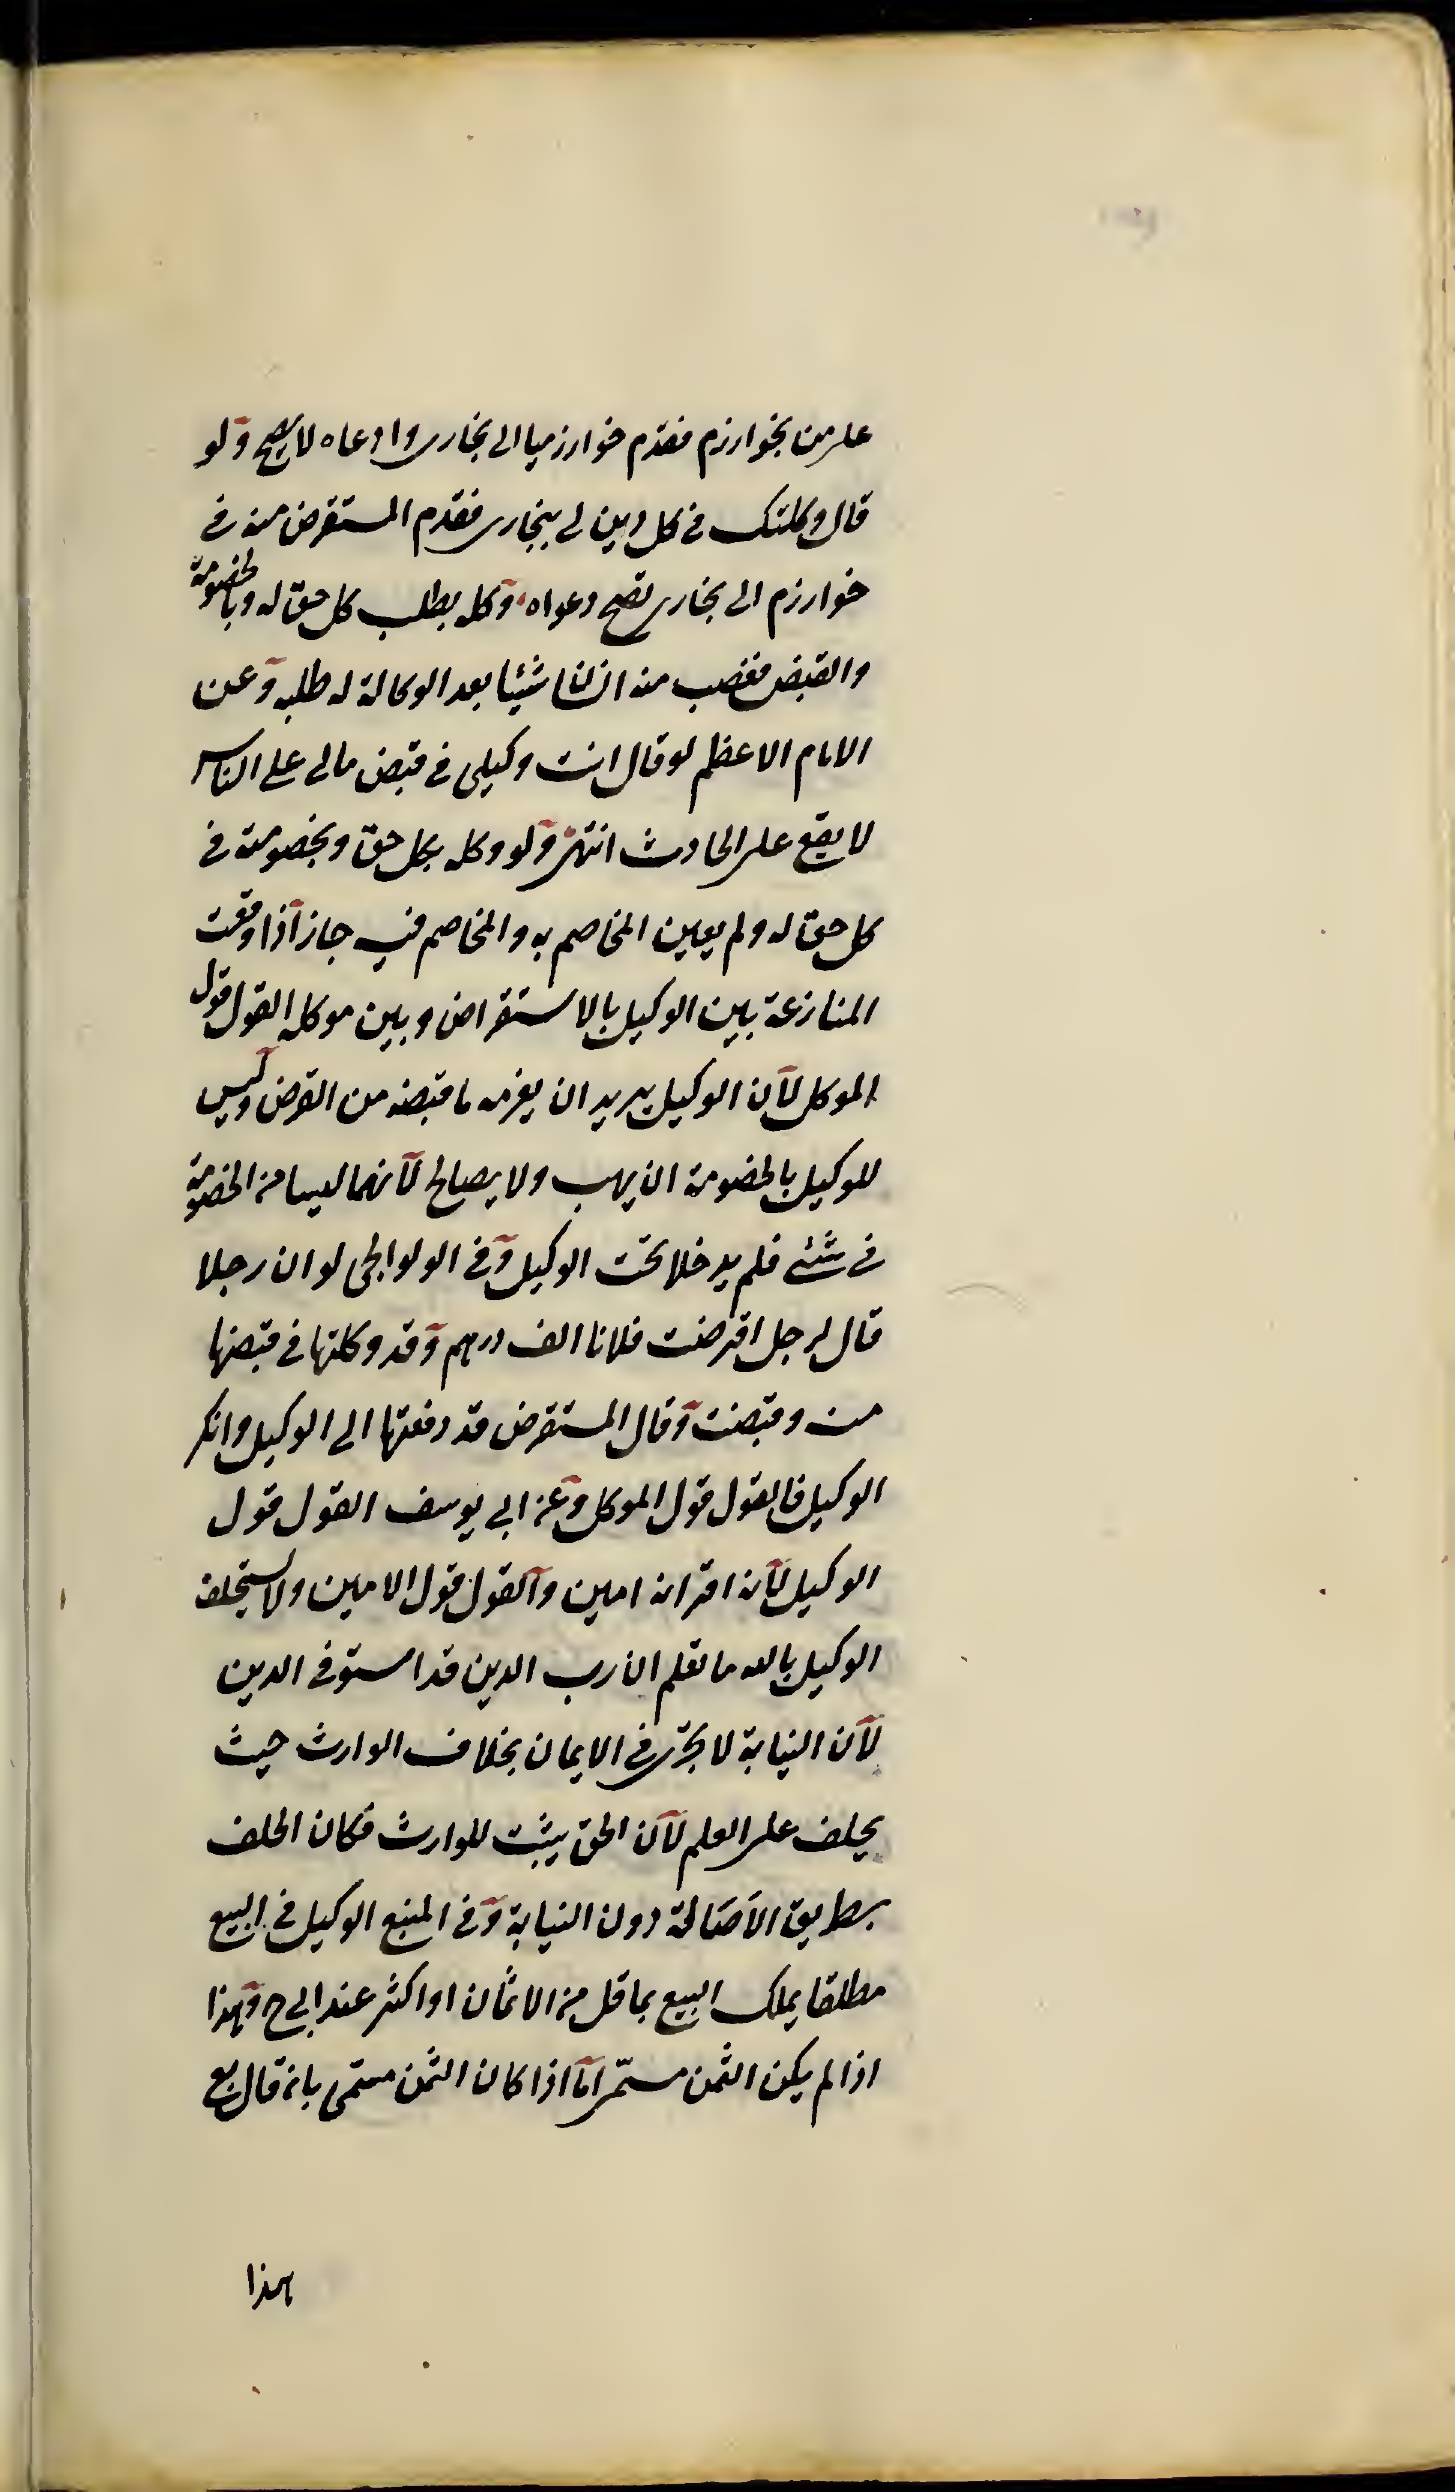 على من بخوارزم فقدم خوارزميا الى بخارى وادعاه لا يصح ولو
قال وكلتك فى كل دين لى ببخارى فقدم المستقرض منه فى
خوارزم الى بخارى تصح دعواه وكله بطلب كل حق له وبالخصومة
والقبض فغصب منه انسان شيئا بعد الوكالة له طلبه وعن
الامام الاعظم لو قال انت وكيلى فى قبض مالى على الناس
لا يقع على الحادث انتهى ولو وكله بكل حق وبخصومة فى
كل حق له ولم يعين المخاصم به والمخاصم فيه جاز اذا وقعت
المنازعة بين الوكيل بالاستقراض وبين موكله القول قول
الموكل لان الوكيل يريد ان يغرمه ما قبضه من القرض وليس
للوكيل بالخصومة ان يهب ولا يصالح لانهما ليسا من الخصومة
فى شئ فلم يدخلا تحت الوكيل وفى الولوالجى لو ان رجلا
قال لرجل اقرضت فلانا الف درهم وقد وكلتها فى قبضها
منه وقبضت وقال المستقرض قد دفعتها الى الوكيل وانكر
الوكيل فالقول قول الموكل وعن ابى يوسف القول قول
الوكيل لانه اقر انه امين والقول قول الامين ولا يستحلف
الوكيل بالله ما تعلم ان رب الدين قد استوفى الدين
لان النيابة لا تجرى فى الايمان بخلاف الوارث حيث
يحلف على العلم لان الحق يثبت للوارث فكان الحلف
بطريق الاصالة دون النيابة وفى المنبع الوكيل فى البيع
مطلقا يملك البيع بما قل من الاثمان او اكثر عند ابى ح وهذا
اذا لم يكن الثمن مسمى اما اذا كان الثمن مسمى بان قال بع
هذا